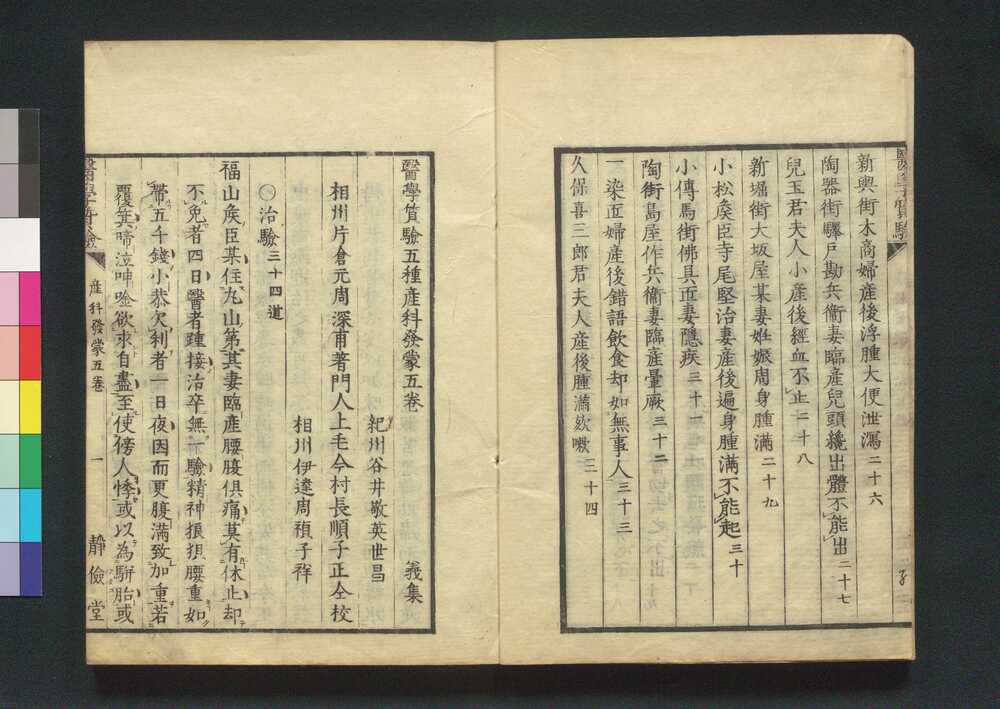 新興街木商婦産後浮腫大便泄瀉二十六
陶器街驛戸勘兵衞妻臨産兒頭纔出體不能出二十七
兒玉君夫人小産後經血不止二十八
新堀街大坂屋某妻姙娠周身腫滿二十九
小松矦臣寺尾堅治妻産後遍身腫滿不能起三十
小傳馬街佛具匠妻隱疾三十一
陶街島屋作兵衞妻臨産暈厥三十二
一染匠婦産後錯語飲食却如無事人三十三
久保喜三郎君夫人産後腫滿欬嗽三十四
醫學質驗
醫學質驗五種産科發蒙五卷
紀州谷井敬英世昌
義集
相州片倉元周深甫著門人上毛今村長順子正仝校
相州伊達周禎子祥
〇治驗三十四道
福山矦臣某住丸山第其妻臨産腰腹俱痛莫有休止却
不免者四日醫者踵接治卒無一驗精神狼狽腰重如
帶五千錢小恭欠利者一日夜因而更腹滿致加重若
覆箕啼泣呻唫欲求自盡至使傍人悸或以為駢胎或
醫學質驗
産科發蒙五卷
一
靜儉堂